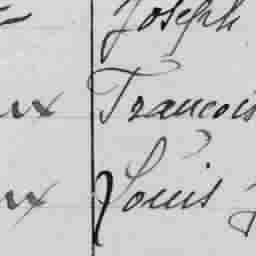 Joseph
ux Francois
ux Louis